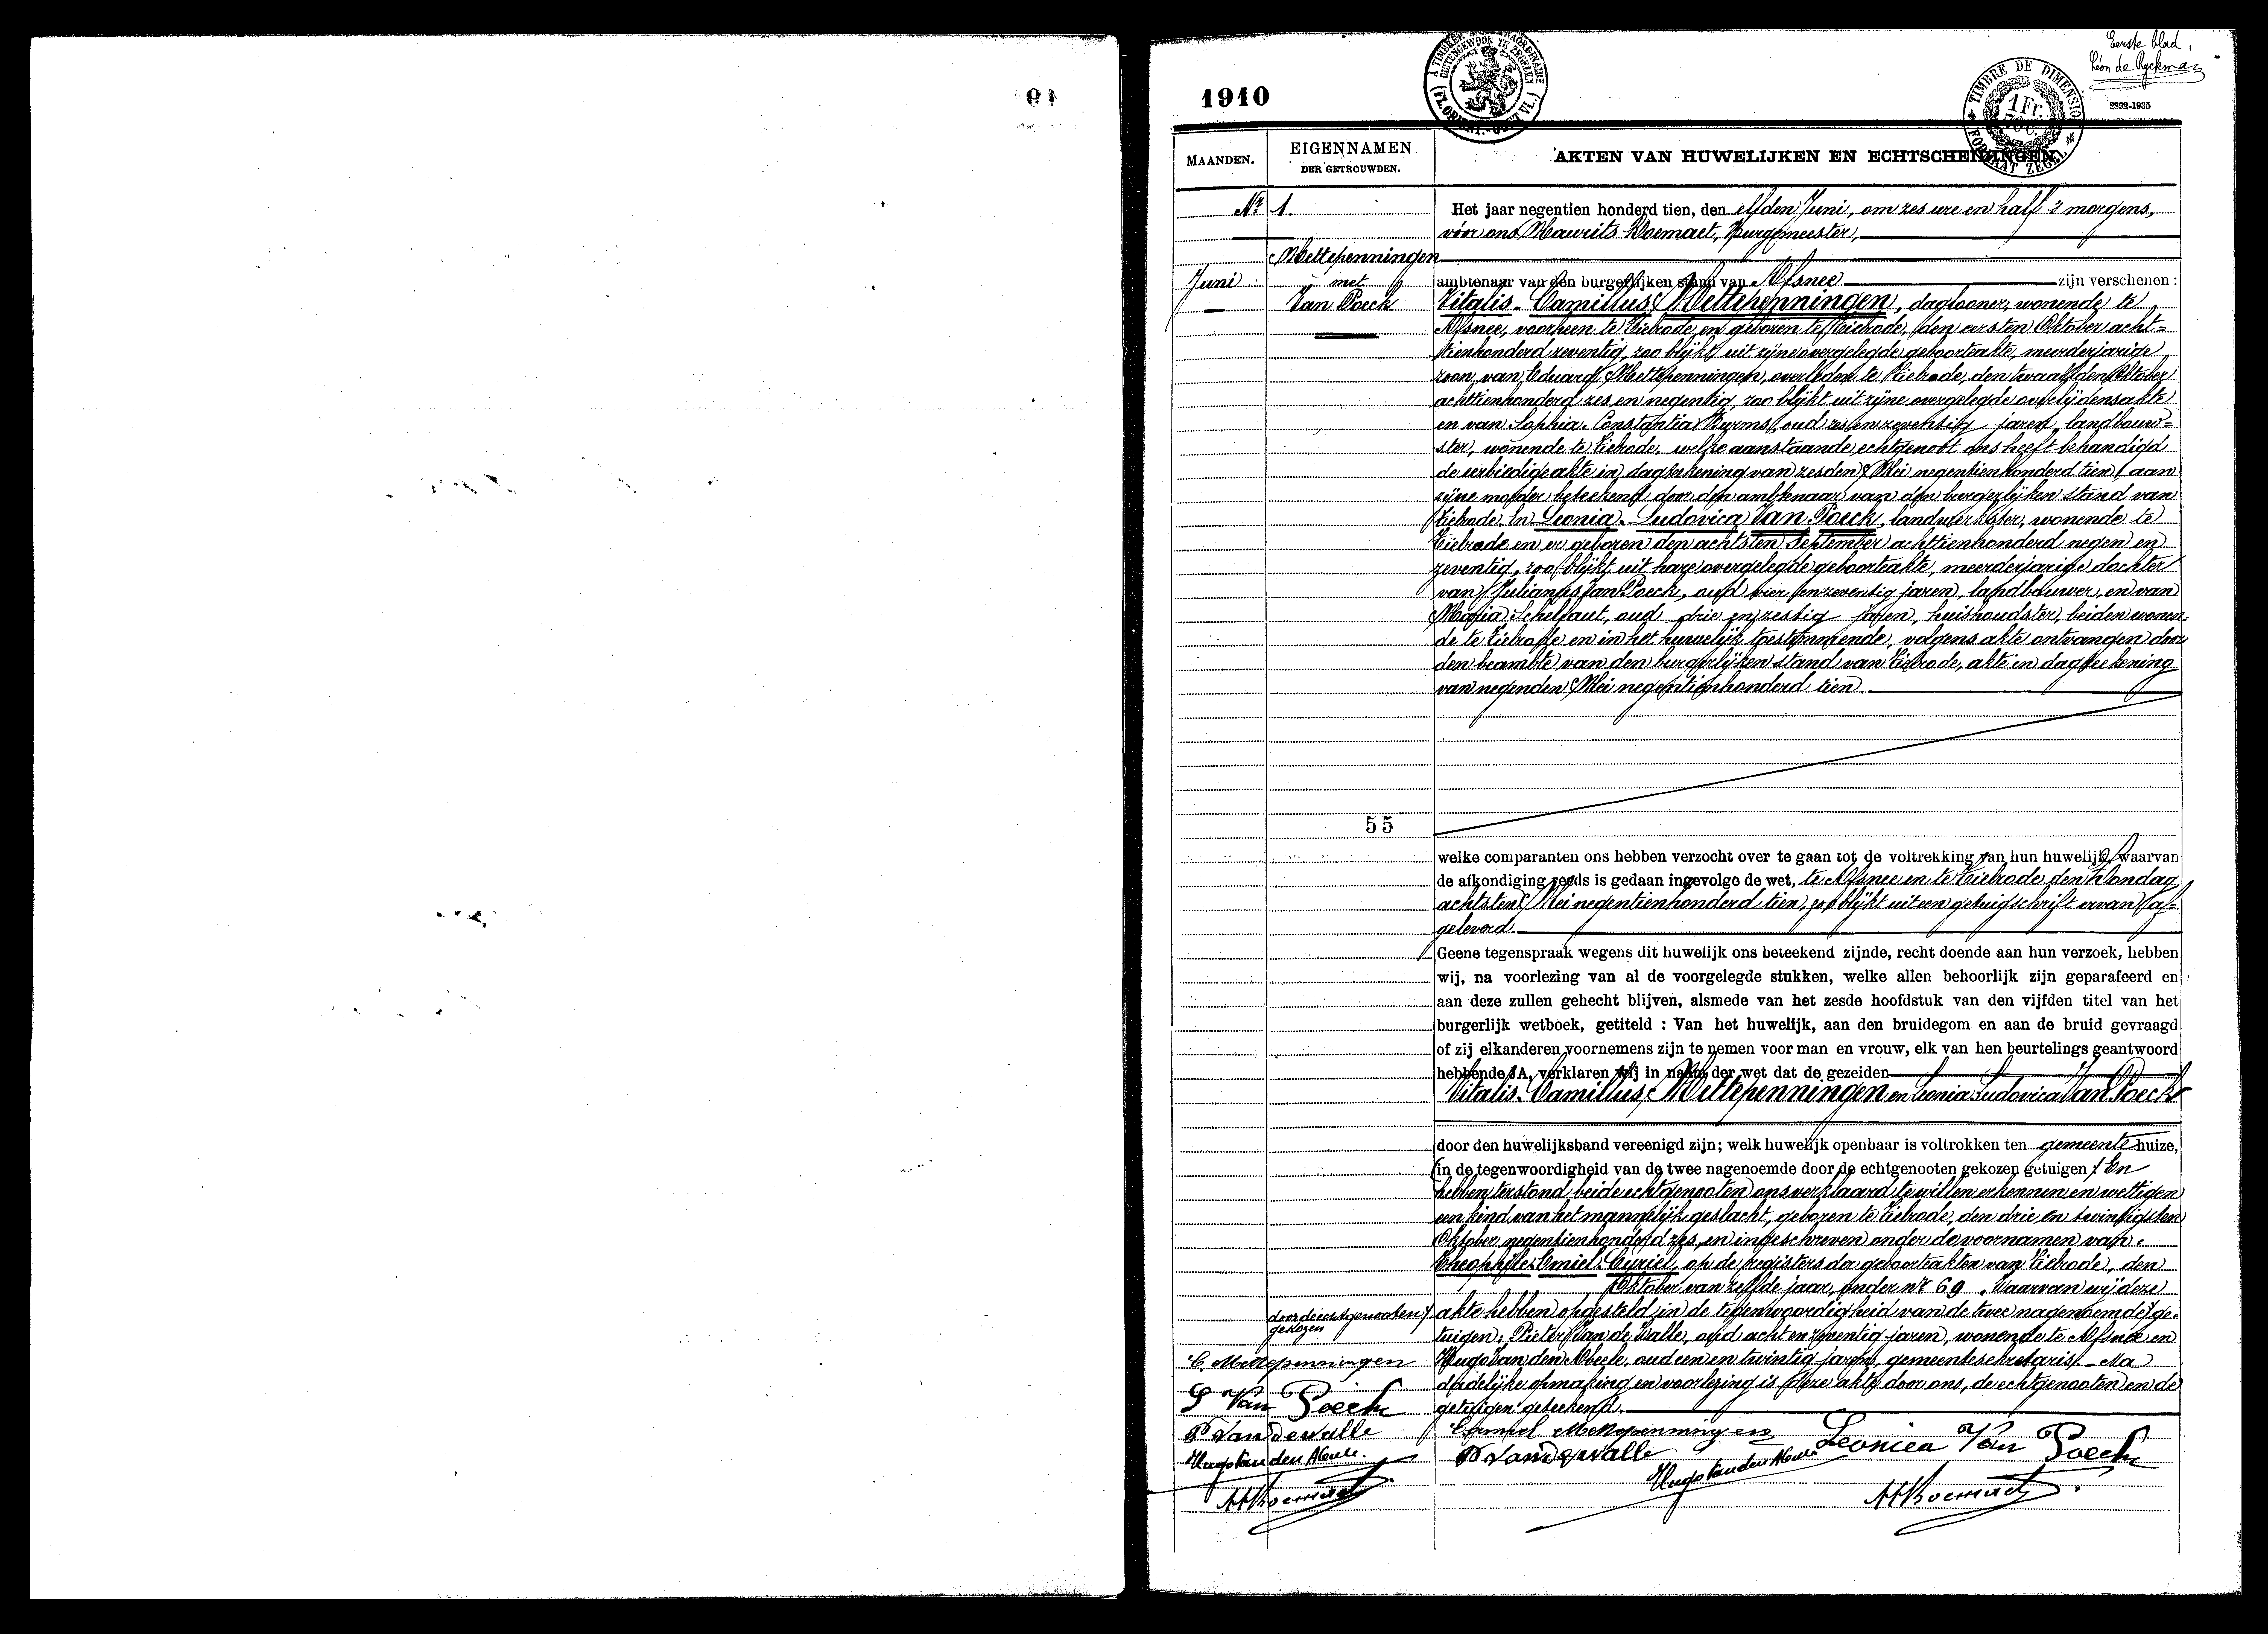 Eerste blad,
Léon de Ryckman
1910
A TIMBRER EXTRAORDINAIRE
BUITENGEWOON TE ZEGELEN
(FL. ORIENT.-OOST VL.)
TIMBRE DE DIMENSION
1 Fr.
FORMAAT ZEGEL
2892-1935
MAANDEN.
EIGENNAMEN
DER GETROUWDEN.
AKTEN VAN HUWELIJKEN EN ECHTSCHEIDINGEN
Nr 1.
Mettepenningen
Juni met
Van Poeck
Het jaar negentien honderd tien, den elfden Juni, om zes ure en half 's morgens,
vóór ons Maurits Boemaet, Burgemeester,
ambtenaar van den burgerlijken stand van Afsnee zijn verschenen :
Vitalis-Camillus Mettepenningen, daglooner, wonende te
Afsnee, voorheen te Tielrode en geboren te Tielrode, den eersten Oktober acht-
tienhonderd zeventig, zoo blijkt uit zijne overgelegde geboorteakte, meerderjarige
zoon van Eduard Mettepenningen, overleden te Tielrode, den twaalfden Oktober
achttienhonderd zes en negentig, zoo blijkt uit zijne overgelegde overlijdensakte
en van Sophia-Constantia Wyrms, oud zes en zeventig jaren, landbouw-
ster, wonende te Tielrode, welke aanstaande echtgenoot ons heeft behandigd
de eerbiedige akte in dagteekening van zesden Mei negentienhonderd tien, aan
zijne moeder beteekend door den ambtenaar van den burgerlijken stand van
Tielrode. En Leonia-Ludovica Van Poeck, landwerkster, wonende te
Tielrode en er geboren den achtsten September achttienhonderd negen en
zeventig, zoo blijkt uit hare overgelegde geboorteakte, meerderjarige dochter
van Julianus Van Poeck, oud vier en zeventig jaren, landbouwer, en van
Maria Schelfaut, oud drie en zestig jaren, huishoudster, beiden wonen-
de te Tielrode en in het huwelijk toestemmende, volgens akte ontvangen door
den beambte van den burgerlijken stand van Tielrode, akte in dagteekening
van negenden Mei negentienhonderd tien.
55
welke comparanten ons hebben verzocht over te gaan tot de voltrekking van hun huwelijk, waarvan
de afkondiging reeds is gedaan ingevolge de wet, te Afsnee en te Tielrode den Zondag
achtsten Mei negentienhonderd tien, zoo blijkt uit een getuigschrift ervan af-
geleverd.
Geene tegenspraak wegens dit huwelijk ons beteekend zijnde, recht doende aan hun verzoek, hebben
wij, na voorlezing van al de voorgelegde stukken, welke allen behoorlijk zijn geparafeerd en
aan deze zullen gehecht blijven, alsmede van het zesde hoofdstuk van den vijfden titel van het
burgerlijk wetboek, getiteld : Van het huwelijk, aan den bruidegom en aan de bruid gevraagd
of zij elkanderen voornemens zijn te nemen voor man en vrouw, elk van hen beurtelings geantwoord
hebbende JA, verklaren wij in naam der wet dat de gezeiden
Vitalis-Camillus Mettepenningen en Leonia-Ludovica Van Poeck
door den huwelijksband vereenigd zijn; welk huwelijk openbaar is voltrokken ten gemeente huize,
in de tegenwoordigheid van de twee nagenoemde door de echtgenooten gekozen getuigen En
hebben terstond beide echtgenooten ons verklaard te willen erkennen en wettigen
een kind van het mannelijk geslacht, geboren te Tielrode, den drie en twintigsten
Oktober negentienhonderd zes, en ingeschreven onder de voornamen van
Theophile-Emiel-Cyriel, op de registers der geboorteakten van Tielrode, den
Oktober van zelfde jaar, onder nr 69. Waarvan wij deze
akte hebben opgesteld in de tegenwoordigheid van de twee nagenoemde ge-
door de echtgenooten
gekozen
tuigen: Pieter Van de Walle, oud acht en zeventig jaren, wonende te Afsnee en
Hugo Van den Abeele, oud een en twintig jaren, gemeentesekretaris. - Na
dadelijke opmaking en voorlezing is deze akte door ons, de echtgenooten en de
getuigen geteekend.
C. Mettepenningen
L Van Poeck
P Van dewalle
Hugo Van den Abeele.
MBoemaet
Camiel Mettepenningen
Leonica Van Poeck
P Van dewalle
Hugo Van den Abeele
MBoemaet